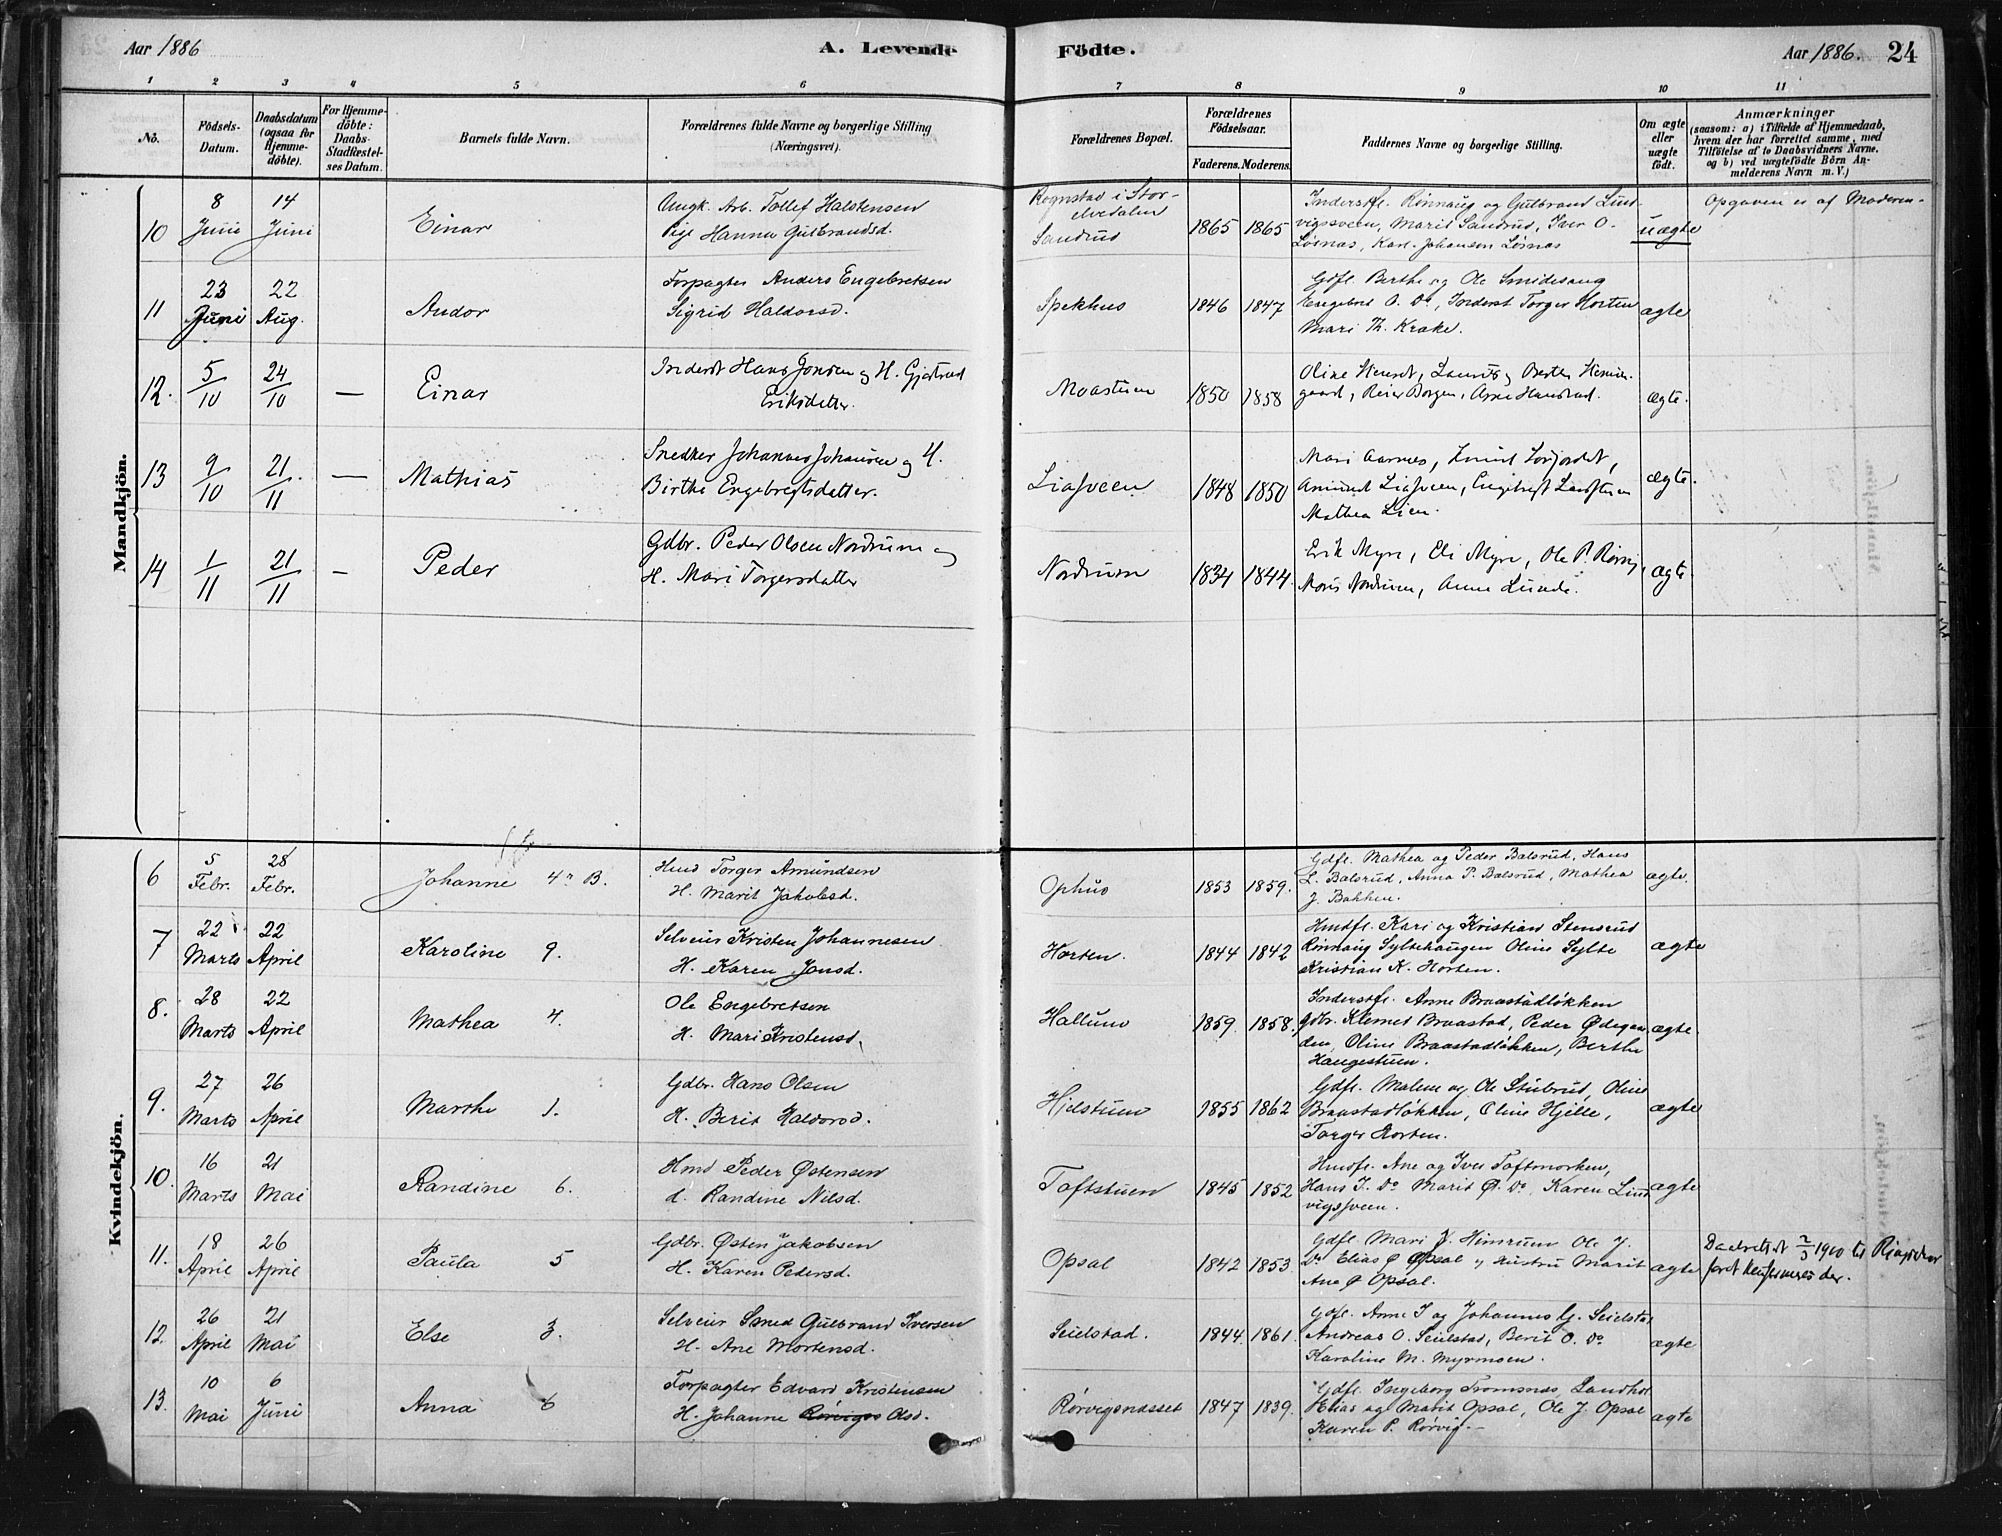 Aar 1886
A. Levende
Födte.
Aar 1886. 24
1 2 3 4 5 6 7 8 9 10 11
No.
Födsels-
Datum.
Daabsdatum
(ogsaa for
Hjemme-
döbte).
For Hjemme-
döbte:
Daabs-
Stadfæstel-
ses Datum.
Barnets fulde Navn.
Forældrenes fulde Navne og borgerlige Stilling
(Næringsvei).
Forældrenes Bopæl.
Forældrenes
Födselsaar.
Faderens. Moderens.
Faddernes Navne og borgerlige Stilling.
Om ægte
eller
uægte
födt.
Anmærkninger
(saasom: a) i Tilfælde af Hjemmedaab,
hvem der har forrettet samme, med
Tilföielse af to Daabsvidners Navne.
og b) ved uægtefödte Börn An-
melderens Navn m. V.)
Mandkjön.
10 8 Juni 14 Juni Einar
Ungk. Arb. Tollef Halstensen
Pige Hanna Gulbrandsd.
Rognstad i Stor-
elvedalen
Sandrud
1865 1865
Inderstfl. Rinnaug og Gulbrand Lund
vigssveen, Marit Sandrud, Iver O.
Losnas, Karl Johansen Losnas
uægte
Opgaven er af Moderen
11 23 Juni 22 Aug. Andor
Forpagter Anders Engebretsen
Sigrid Haldorsd.
Spekhus
1846 1847
Gdfl. Berthe og Ole Smidesang
Engebret O. Do, Inderst Torger Horten
Mari Th. Krake.
ægte
12. 5/10 24/10 — Einar
Inderst Hans Jonsen og H. Gjertrud
Eriksdatter.
Moastuen
1850 1858
gaard, Reier Borgen, Arne
ægte.
13 9/10 21/11. — Mathias
Snedker Johannes Johansen og H.
Birthe Engebregtsdatter.
Liasveen
1848 1850
Mari Aarnes,
Amund Liasveen,
Mathea Lien.
ægte.
14 1/11 21/11 — Peder
Gdbr. Peder Olsen Nordrum og
H. Mari Torgersdatter
Nordrum
1834 1844.
Erik Myre, Eli Myre, Ole P. Rørvig,
Nordrum, Anne Lunde.
ægte
Kvindekjön.
6 5 Febr. 28 Febr. Johanne 4 B.
Hmd Torger Amundsen
H. Marit Jakobsd.
Ophus
1853 1859.
Gdfl. Mathea og Peder Balsrud, Hans
L. Balsrud, Anna P. Balsrud, Mathea
J. Bakken.
ægte.
7 22 Marts 22 April Karoline 9.
Selveier Kristen Johannesen
H. Karen Jonsd.
Horten.
1844 1842
Hmdfl. Kari og Kristian Stensrud
Rinnaug Syltehaugen Oline Sylte
Kristian K. Horten.
ægte
8. 28 Marts 22 April Mathea 4.
Ole Engebretsen
H. Mari Kristensd.
Hallum
1859. 1858.
Inderstfl. Anne Braastadløkken
Gdbr. Klemet Braastad, Peder Ødegaar
den, Oline Braastadløkken, Berthe
Haugestuen.
ægte
9. 27 Marts 26 April Marthe 1.
Gdbr. Hans Olsen
H. Berit Haldorsd.
Hjelstuen
1855 1862
Gdfl. Malene og Ole Stubrud, Oline
Braastadløkken, Oline Hjelle,
Torger Horten.
ægte
10. 16 Marts 21 Mai Randine 6.
Hmd Peder Østensen
d. Randine Nilsd.
Toftstuen
1845 1852
Hmdfl. Ane og Iver Toftmorken,
Hans I. Do Marit Ø. Do, Karen Lund
vigssveen.
ægte
11. 18 April 26 April Paula 5
Gdbr. Østen Jakobsen
H. Karen Pedersd.
Opsal
1842 1853
Gdfl. Mari J. Himrum Ole J.
Do Elias Ø Opsal og Hustru Marit
Ane Ø Opsal.
ægte
Daabsattest 2/5 1900 til Ringebu
12. 26 April 21 Mai Else 3.
Selveier Smed Gulbrand Iversen
H. Ane Mortensd.
Seielstad.
1844 1861.
Gdfl. Anne I og Johannes G. Seielstad
Andreas O. Seielstad, Berit O. Do
Karoline M. Myrmoen.
ægte
13. 10 Mai 6 Juni Anna 6
Forpagter Edvard Kristensen
H. Johanne Olsd.
Rørvigsnæsset
1847 1839.
Gdfl. Ingeborg Tromsnæs, Landh.
Elias og Marit Opsal, Ole J. Opsal
Karen P. Rørvig.
ægte